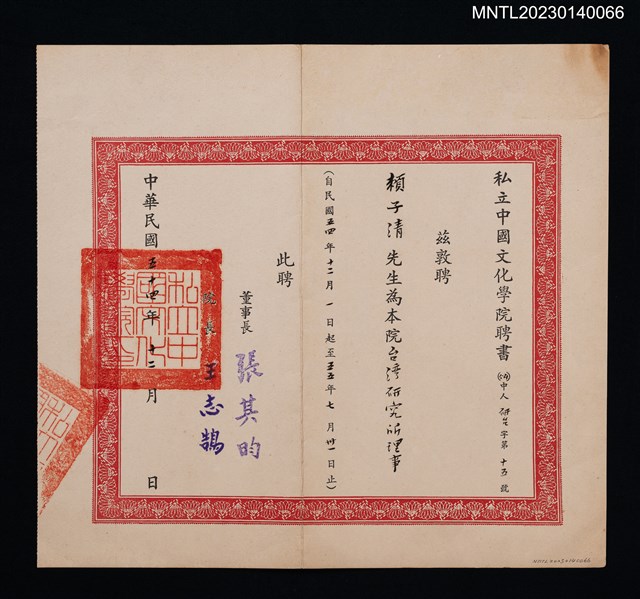 MNTL20230140066
私立中國文化學院聘書 (54)中人研台字第十五號
茲敦聘
賴子清先生為本院台湾研究所理事
(自民國五四年十二月一日起至五五年七月卅一日止)
此聘
董事長 張其昀
院長 王志鵠
中華民國五十四年十二月 日
私立中國文化學院印
MNTL20230140066